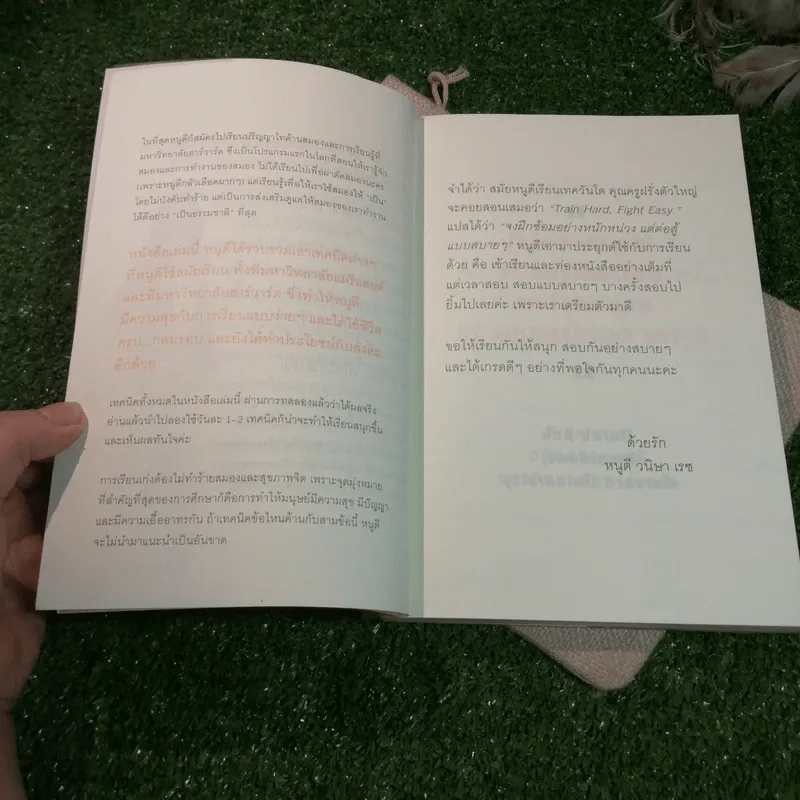 ในที่สุดหนูดีก็สมัครไปเรียนปริญญาโทด้านสมองและการเรียนรู้ที่
มหาวิทยาลัยฮาร์วาร์ด ซึ่งเป็นโปรแกรมแรกในโลกที่สอนให้เรารู้จัก
สมองและการทำงานของสมอง ไม่ได้เรียนไปเพื่อผ่าตัดสมองนะคะ
(เพราะหนูดีกลัวเลือดมากๆ) แต่เรียนรู้เพื่อให้เราใช้สมองให้ "เป็น"
โดยไม่บังคับทำร้าย แต่เป็นการส่งเสริมดูแลให้สมองของเราทำงาน
ได้ดีอย่าง "เป็นธรรมชาติ" ที่สุด
หนังสือเล่มนี้ หนูดีได้รวบรวมเอาเทคนิคต่างๆ
ที่หนูดีใช้สมัยเรียน ทั้งที่มหาวิทยาลัยแมรีแลนด์
และที่มหาวิทยาลัยฮาร์วาร์ด ซึ่งทำให้หนูดี
มีความสุขกับการเรียนแบบง่ายๆ และได้ใช้ชีวิต
ครบ...กลมรอบ และยังได้ทำประโยชน์กับสังคม
อีกด้วย
เทคนิคทั้งหมดในหนังสือเล่มนี้ ผ่านการทดลองแล้วว่าได้ผลจริง
อ่านแล้วนำไปลองใช้วันละ 1-2 เทคนิคก็น่าจะทำให้เรียนสนุกขึ้น
และเห็นผลทันใจค่ะ
การเรียนเก่งต้องไม่ทำร้ายสมองและสุขภาพจิต เพราะจุดมุ่งหมาย
ที่สำคัญที่สุดของการศึกษาก็คือการทำให้มนุษย์มีความสุข มีปัญญา
และมีความเอื้ออาทรกัน ถ้าเทคนิคข้อไหนค้านกับสามข้อนี้ หนูดี
จะไม่นำมาแนะนำเป็นอันขาด
จำได้ว่า สมัยหนูดีเรียนเทควันโด คุณครูฝรั่งตัวใหญ่
จะคอยสอนเสมอว่า "Train Hard, Fight Easy."
แปลได้ว่า "จงฝึกซ้อมอย่างหนักหน่วง แต่ต่อสู้
แบบสบายๆ" หนูดีเอามาประยุกต์ใช้กับการเรียน
ด้วย คือ เข้าเรียนและท่องหนังสืออย่างเต็มที่
แต่เวลาสอบ สอบแบบสบายๆ บางครั้งสอบไป
ยิ้มไปเลยค่ะ เพราะเราเตรียมตัวมาดี
ขอให้เรียนกันให้สนุก สอบกันอย่างสบายๆ
และได้เกรดดีๆ อย่างที่พอใจกันทุกคนนะคะ
ด้วยรัก
หนูดี วนิษา เรซ